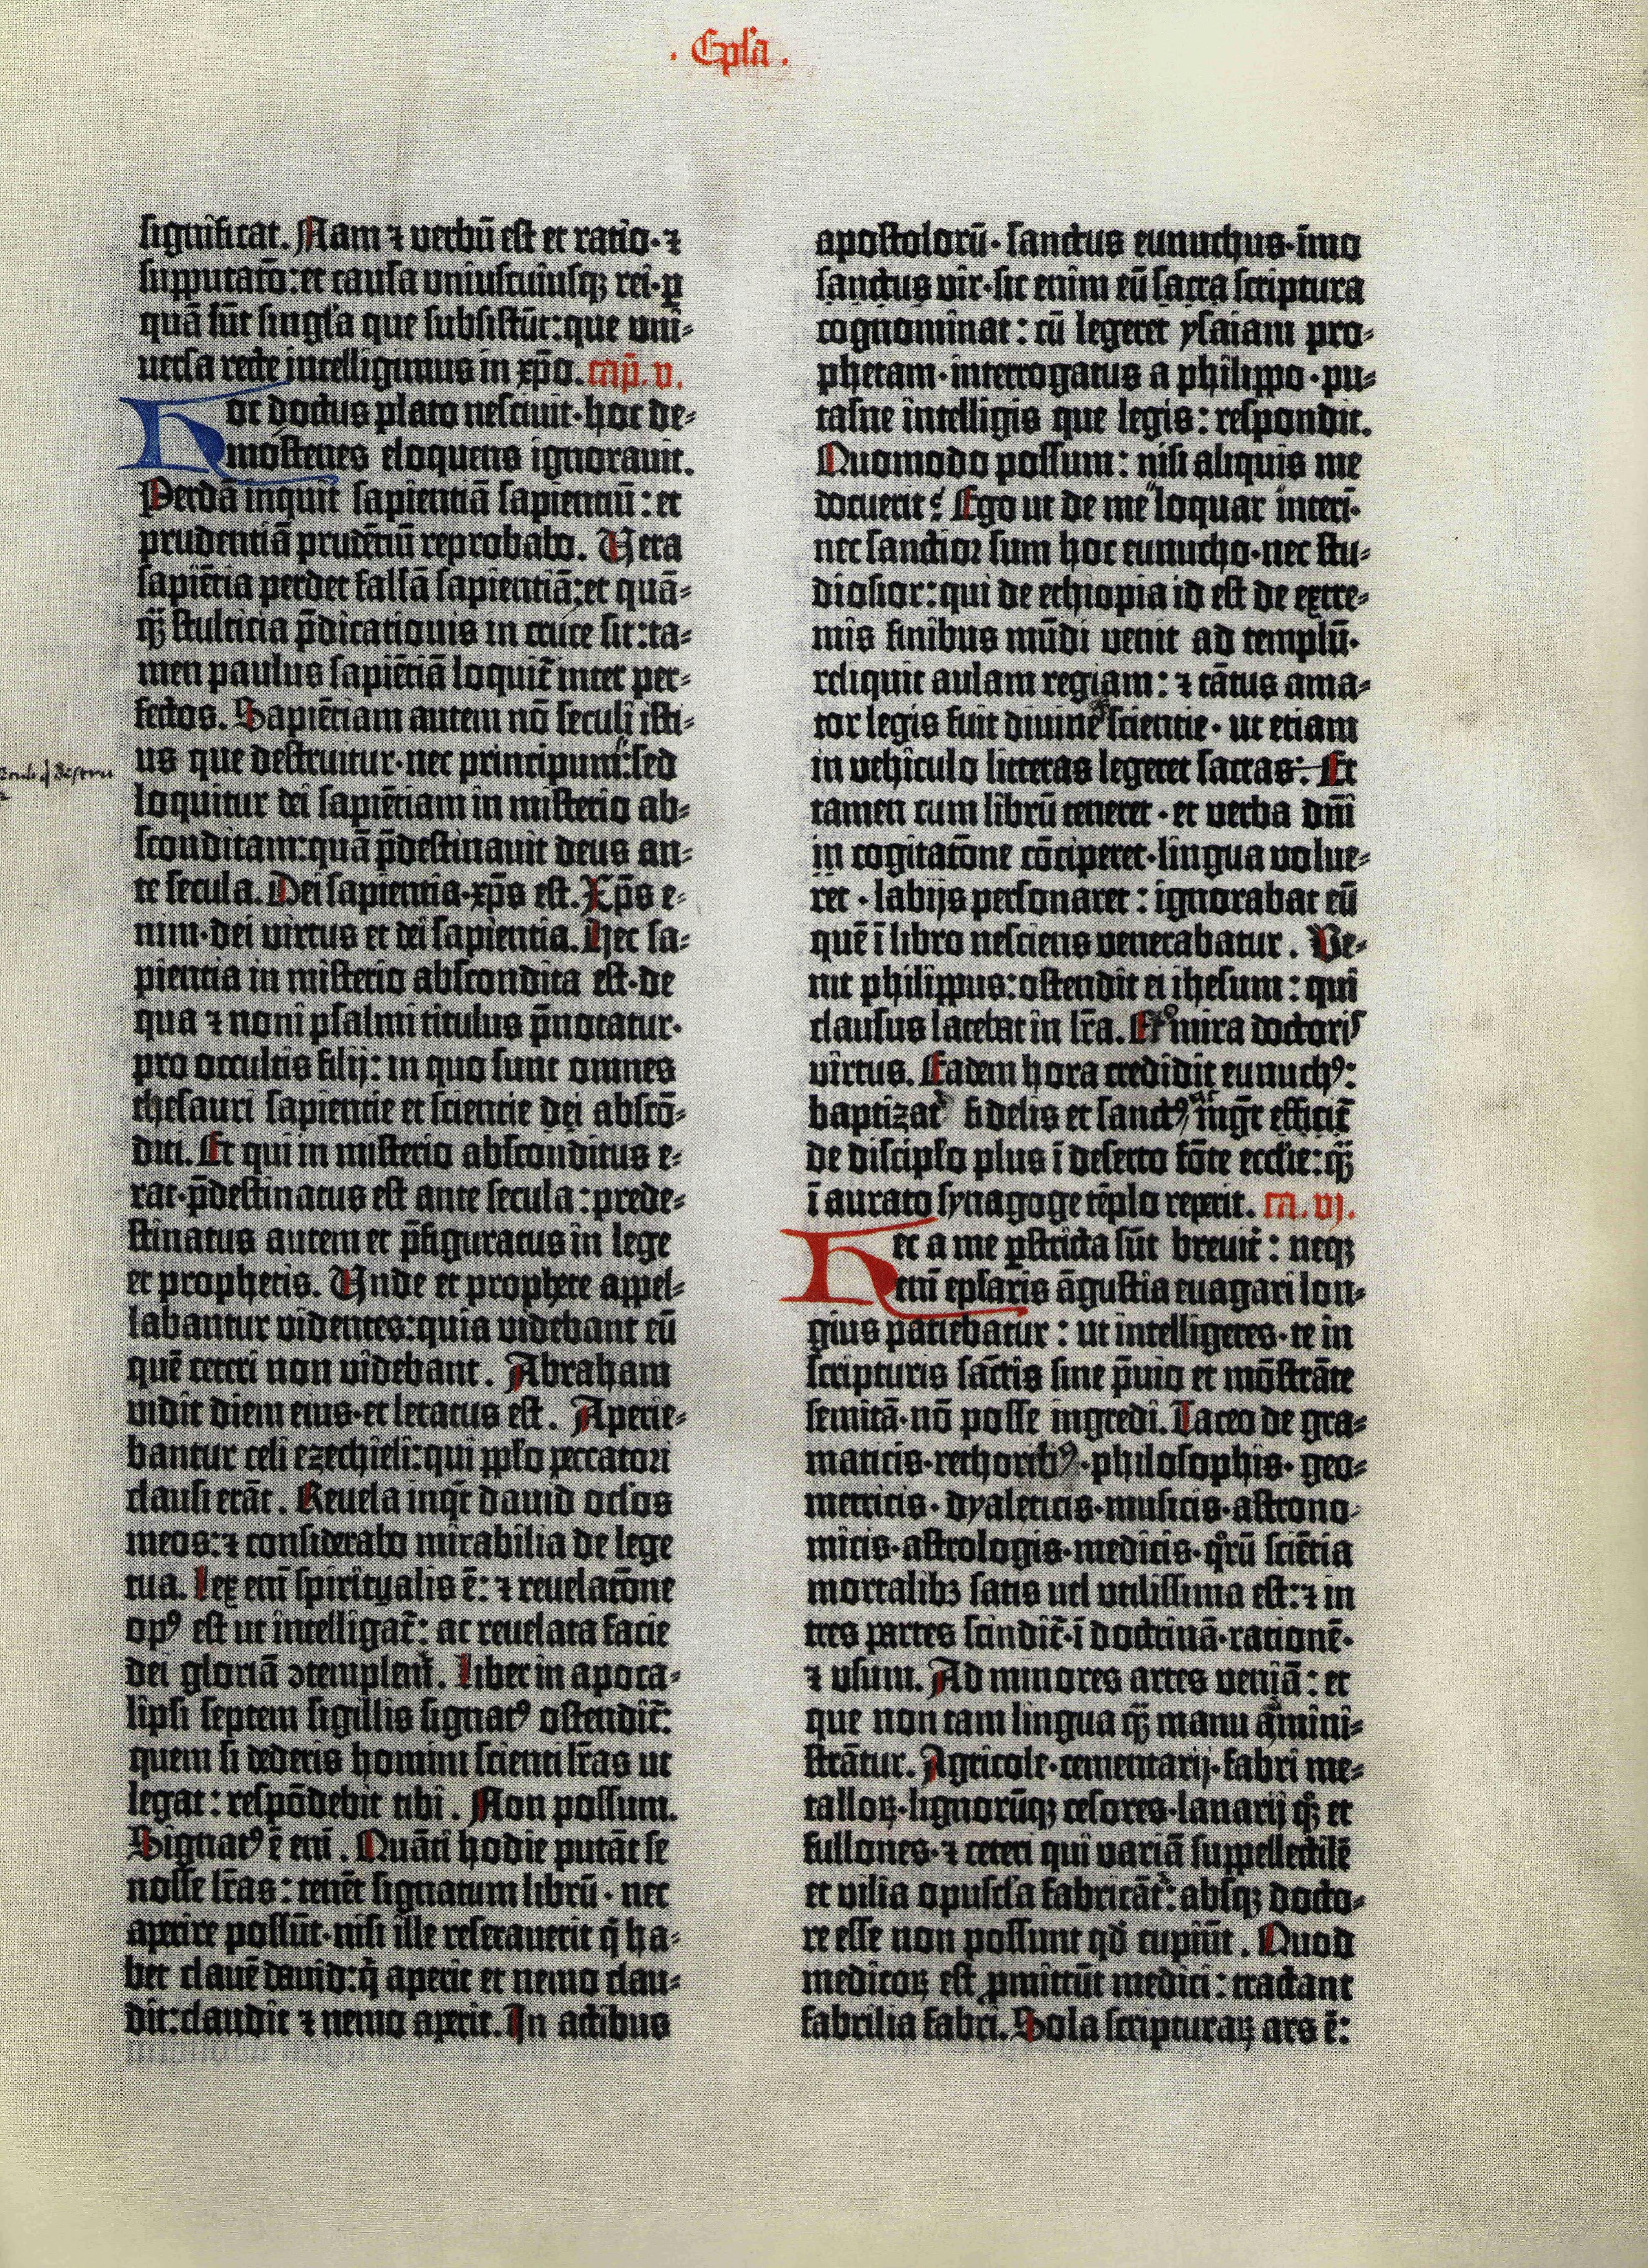 . Ep̄la .
significat. Nam ⁊ verbū est et ratio· ⁊
supputatō: et causa uniuscuiusqꝫ rei· ꝑ
quā sūt singl'a que subsistūt: que uni⸗
uersa recte intelligimus in xp̄o. cap̄. v.
Hoc doctus plato nesciuit· hoc de⸗
mostenes eloquens ignorauit.
Perdā inquit sapientiā sapientiū: et
prudentiā prudētiū reprobabo. Vera
sapiētia perdet falsā sapientiā: et quā⸗
qꝫ̄ stulticia p̄dicationis in cruce sit: ta⸗
men paulus sapiētiā loquit̄ inter per⸗
fectos. Sapiētiam autem nō seculi isti⸗
us que destruitur· nec principum: sed
loquitur dei sapiētiam in misterio ab⸗
sconditam: quā p̄destinauit deus an⸗
te secula. Dei sapientia· xp̄s est. Xp̄s e⸗
nim· dei virtus et dei sapientia. Hec sa⸗
pientia in misterio abscondita est· de
qua ⁊ noni psalmi titulus p̄notatur·
pro occultis filij: in quo sunt omnes
thesauri sapientie et scientie dei abscō⸗
diti. Et qui in misterio absconditus e⸗
rat· p̄destinatus est ante secula: prede⸗
stinatus autem et p̄figuratus in lege
et prophetis. Unde et prophete appel⸗
labantur videntes: quia videbant eū
quē ceteri non videbant. Abraham
vidit diem eius· et letatus est. Aperie⸗
bantur celi ezechieli: qui ppl'o peccatori
clausi erāt. Reuela inqt̄ dauid ocl'os
meos: ⁊ considerabo mirabilia de lege
tua. Lex enī spiritualis ē: ⁊ reuelatōne
opꝰ est ut intelligat̄: ac reuelata facie
dei gloriā ꝯtemplent̄. Liber in apoca⸗
lipsi septem sigillis signatꝰ ostendit̄:
quem si dederis homini scienti lr̄as ut
legat: respōdebit tibi. Non possum.
Signatꝰ ē enī. Quāti hodie putāt se
nosse lr̄as: tenēt signatum librū· nec
aperire possūt· nisi ille reserauerit q̄ ha⸗
bet clauē dauid: q̄ aperit et nemo clau⸗
dit: claudit ⁊ nemo aperit. In actibus
apostolorū· sanctus eunuchus· īmo
sanctus vir· sic enim eū sacra scriptura
cognominat: cū legeret ysaiam pro⸗
phetam· interrogatus a philippo· pu⸗
tasne intelligis que legis: respondit.
Quomodo possum: nisi aliquis me
docuerit? Ego ut de me loquar interī·
nec sanctior sum hoc eunucho· nec stu⸗
diosior: qui de ethiopia id est de extre⸗
mis finibus mūdi venit ad templū·
reliquit aulam regiam: ⁊ tātus ama⸗
tor legis fuit diuine scientie· ut etiam
in vehiculo litteras legeret sacras: Et
tamen cum librū teneret· et verba dn̄i
in cogitatōne cōciperet· lingua volue⸗
ret· labijs personaret: ignorabat eū
quē ī libro nesciens venerabatur. Ve⸗
nit philippus: ostendit ei ihesum: qui
clausus latebat in lr̄a. Et o mira doctoris
virtus. Eadem hora credidit eunuchꝰ:
baptizat̄ fidelis et sanctꝰ ac mgr̄ efficit̄
de discipl'o plus ī deserto fōte eccl'ie: qꝫ̄
ī aurato synagoge tēplo reperit. ca. vj.
Hec a me ꝑstricta sūt breuit̄: neqꝫ
enī epl'aris āgustia euagari lon⸗
gius patiebatur: ut intelligeres· te in
scripturis sāctis sine p̄uio et mōstrāte
semitā· nō posse ingredi. Taceo de gra⸗
maticis· rethoribꝰ· philosophis· geo⸗
metricis· dyaleticis· musicis· astrono⸗
micis· astrologis· medicis· qͦrū sciētia
mortalibꝫ satis vel utilissima est: ⁊ in
tres partes scindit̄· ī doctrinā· rationē·
⁊ usum. Ad minores artes veniā: et
que non tam lingua qꝫ̄ manu āmini⸗
strātur. Agricole· cementarij· fabri me⸗
talloꝝ· lignorūqꝫ cesores· lanarij qꝫͦ et
fullones· ⁊ ceteri qui variā suppellectilē
et vilia opuscl'a fabricāt: absqꝫ docto⸗
re esse non possunt qd̄ cupiūt. Quod
medicoꝝ est ꝓmittūt medici: tractant
fabrilia fabri. Sola scripturaꝝ ars ē: